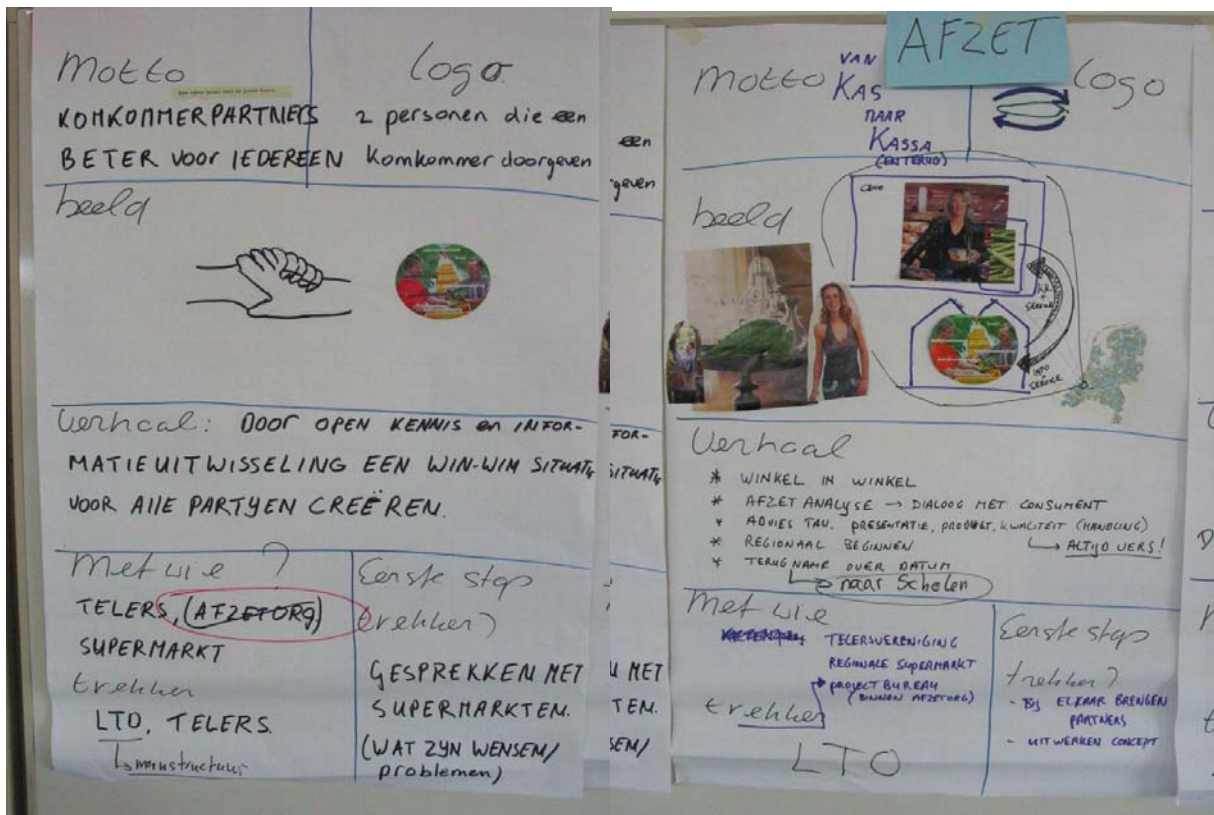 Motto
logo.
KOMKOMMERPARTNERS
BETER VOOR IEDEREEN
2 personen die een
Komkommer doorgeven
beeld
Verhaal: DOOR OPEN KENNIS en INFOR-
MATIEUITWISSELING EEN WIN-WIM SITUATIE
VOOR AllE PARTYEN CREËREN.
Met wie ?
TELERS, (AFZETORG)
SUPERMARKT
trekker
LTO, TELERS.
Eerste stap
trekker?
GESPREKKEN MET
SUPERMARKTEM.
(WAT ZYN WENSEM/
problemen)
een
geven
FOR-
SITUATIE
MET
TEM.
SEM/
AFZET
Motto
VAN
KAS
NAAR
KASSA
(EN TERUG)
logo
beeld
INFO
+
SERVICE
Verhaal
* WINKEL IN WINKEL
* AFZET ANALYSE → DIALOOG MET CONSUMENT
* ADVIES TAV. PRESENTATIE, PRODUKT, KWALITEIT (HANDLING)
→ ALTIJD VERS!
* REGIONAAL BEGINNEN
* TERUGNAME OVER DATUM
→ naar Scholen
Met wie
TELERSVERENIGING
REGIONALE SUPERMARKT
PROJECT BUREAU
(BINNEN AFZETORG)
trekker
LTO
Eerste stap
trekker?
- BIJ ELKAAR BRENGEN
PARTNERS
- UITWERKEN CONCEPT